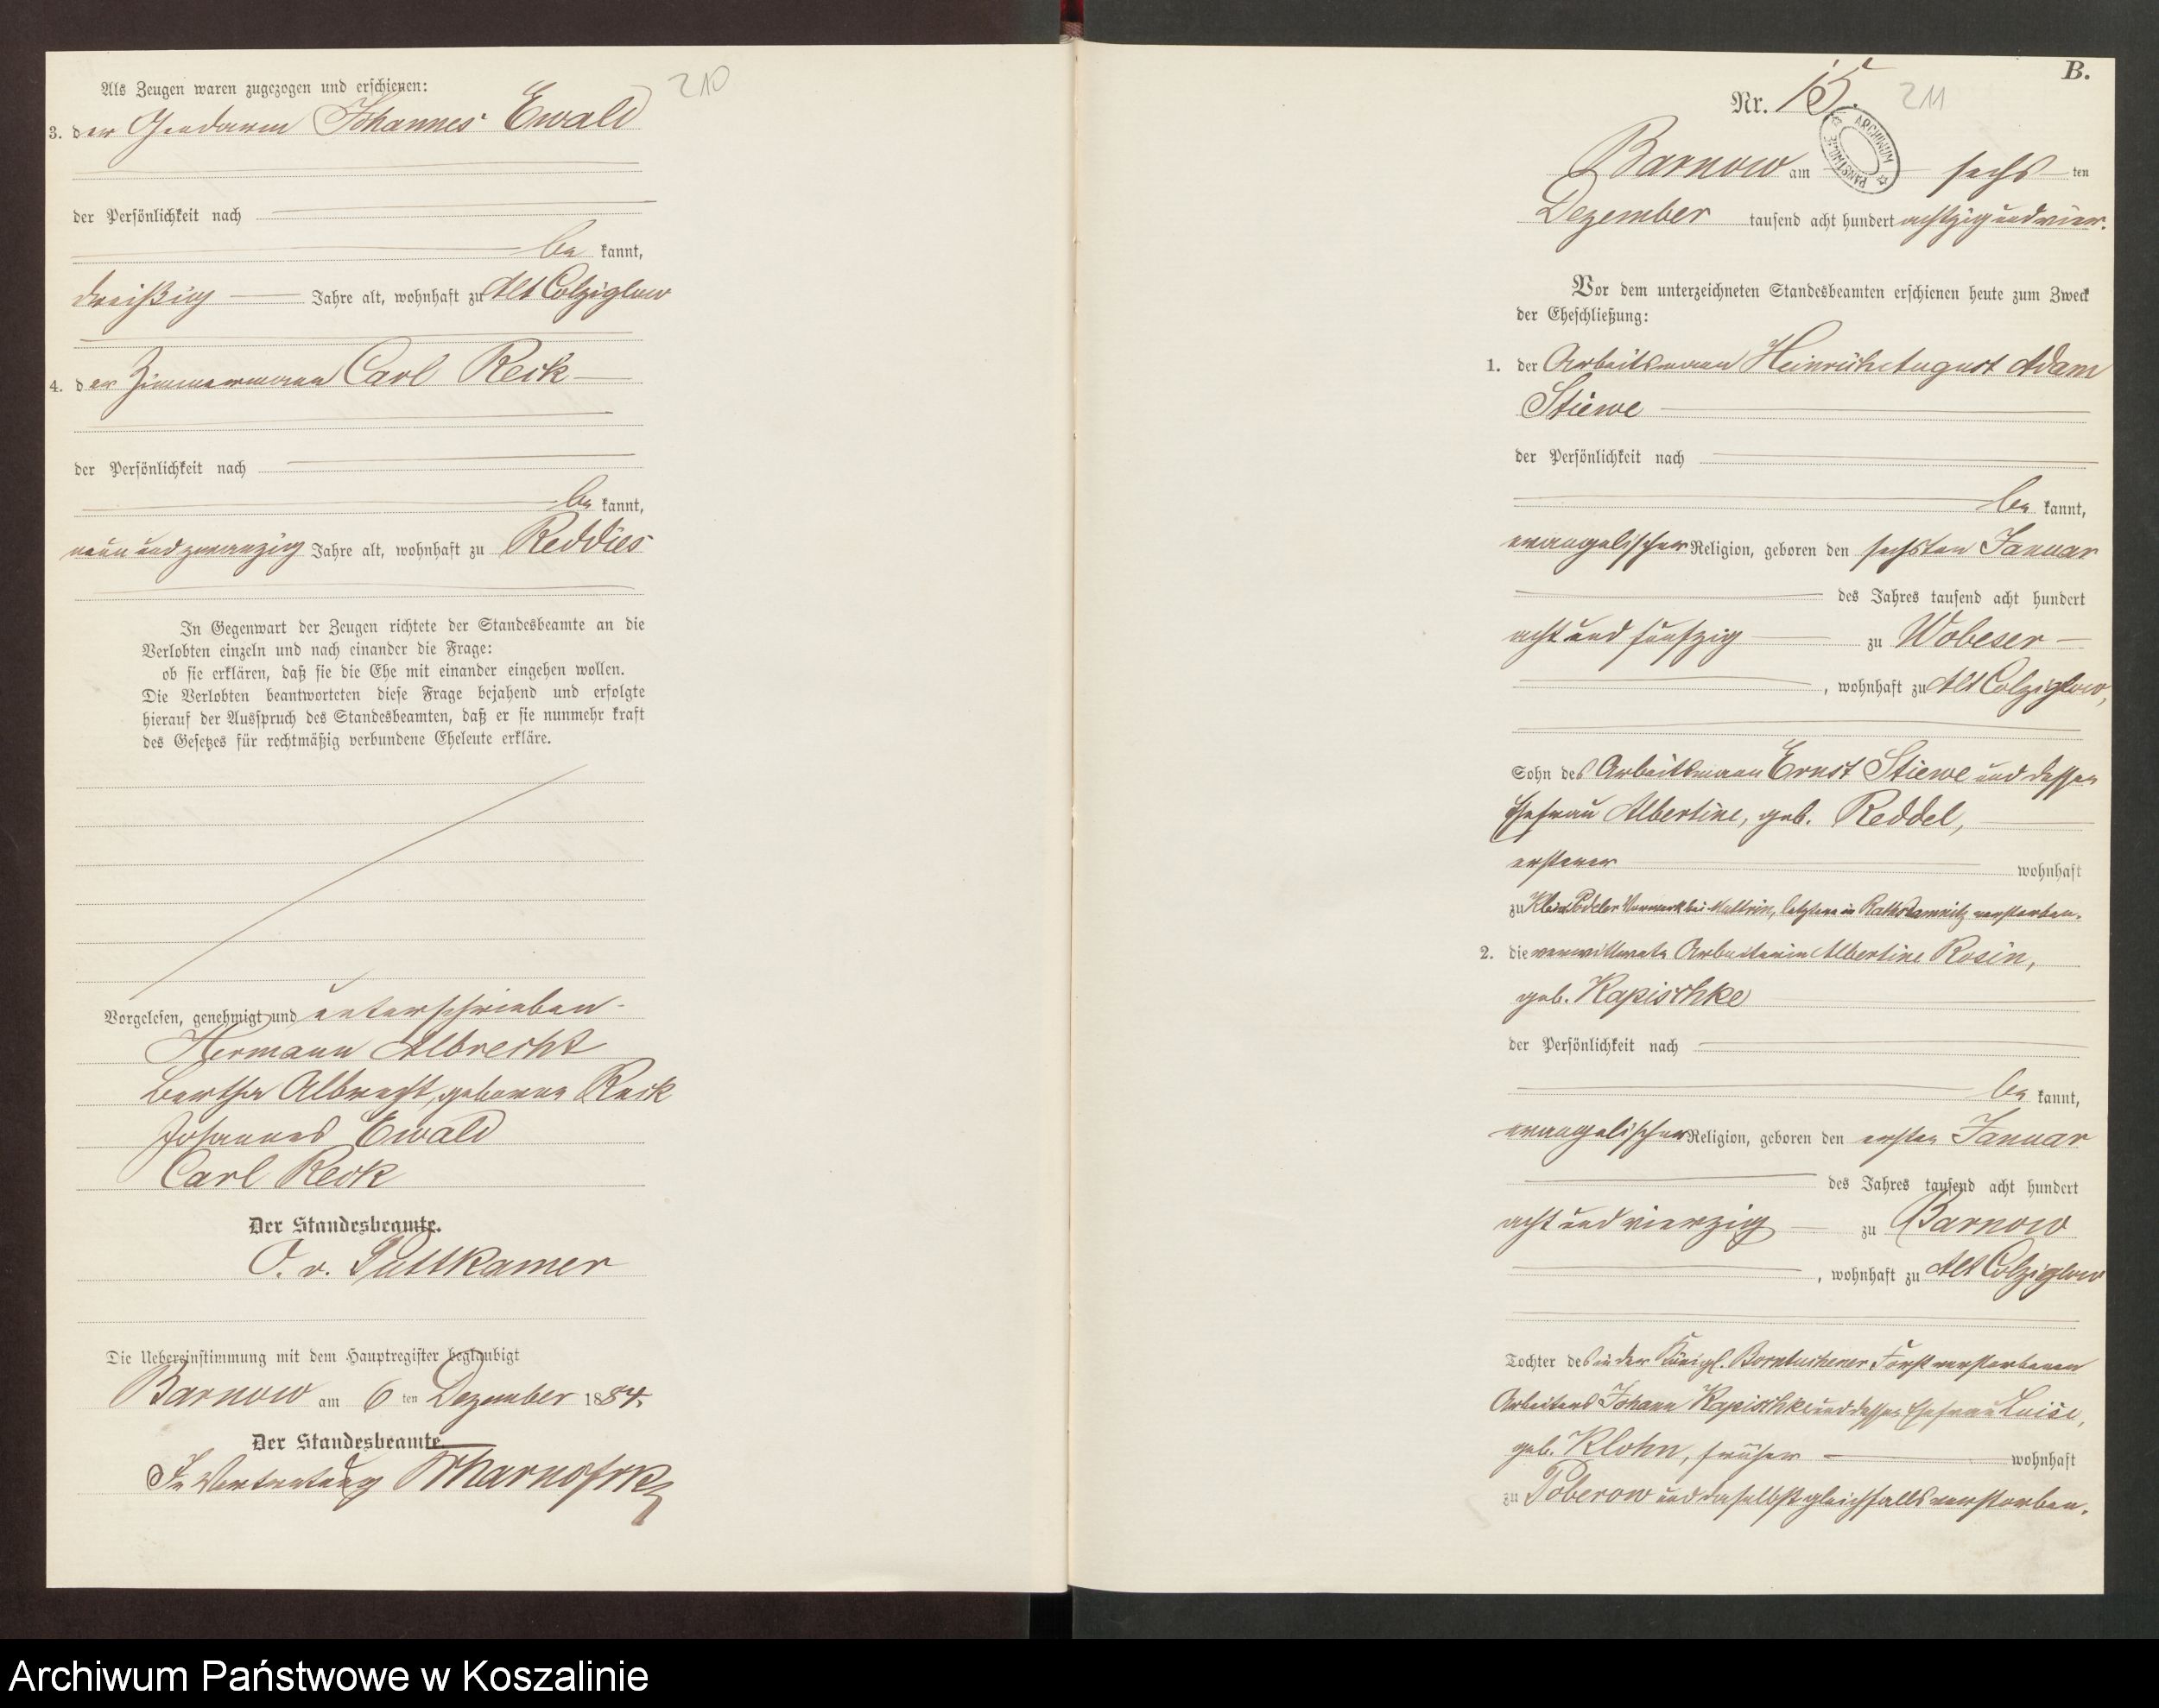 Als Zeugen waren zugezogen und erschienen:
210
3. der Gendarm Johannes Ewald
der Persönlichkeit nach
be kannt,
dreißig Jahre alt, wohnhaft zu Alt Colziglow
4. der Zimmermann Carl Reck
der Persönlichkeit nach
be kannt,
neun und zwanzig Jahre alt, wohnhaft zu Reddies
In Gegenwart der Zeugen richtete der Standesbeamte an die
Verlobten einzeln und nach einander die Frage:
ob sie erklären, daß sie die Ehe mit einander eingehen wollen.
Die Verlobten beantworteten diese Frage bejahend und erfolgte
hierauf der Ausspruch des Standesbeamten, daß er sie nunmehr kraft
des Gesetzes für rechtmäßig verbundene Eheleute erkläre.
Vorgelesen, genehmigt und unterschrieben
Hermann Albrecht
Bertha Albrecht, geborene Reck
Johannes Ewald
Carl Reck
Der Standesbeamte.
O. v. Puttkamer
Die Uebereinstimmung mit dem Hauptregister beglaubigt
Barnow am 6 ten Dezember 1884.
Der Standesbeamte.
In Vertretung
B.
Nr. 15.
211
ARCHIWUM PAŃSTWOWE
Barnow am sechs ten
Dezember tausend acht hundert achtzig und vier.
Vor dem unterzeichneten Standesbeamten erschienen heute zum Zweck
der Eheschließung:
1. der Arbeitsmann Heinrich August Adam
Stiewe
der Persönlichkeit nach
be kannt,
evangelischer Religion, geboren den sechsten Januar
des Jahres tausend acht hundert
acht und fünfzig zu Wobeser
, wohnhaft zu Alt Colziglow,
Sohn des Arbeitsmann Ernst Stiewe und dessen
Ehefrau Albertine, geb. Reddel,
ersterer wohnhaft
zu Klein Podeler Vorwerk bei Muttrin, letztere in Rathsdamnitz verstorben.
2. die verwittwete Arbeiterin Albertine Rosin,
geb. Kapischke
der Persönlichkeit nach
be kannt,
evangelischer Religion, geboren den ersten Januar
des Jahres tausend acht hundert
acht und vierzig zu Barnow
, wohnhaft zu Alt Colziglow
Tochter des in der Königl. Borntuchener Forst verstorbenen
Arbeiters Johann Kapischke und dessen Ehefrau Luise,
geb. Klohn, früher wohnhaft
zu Poberow und daselbst gleichfalls verstorben.
Archiwum Państwowe w Koszalinie